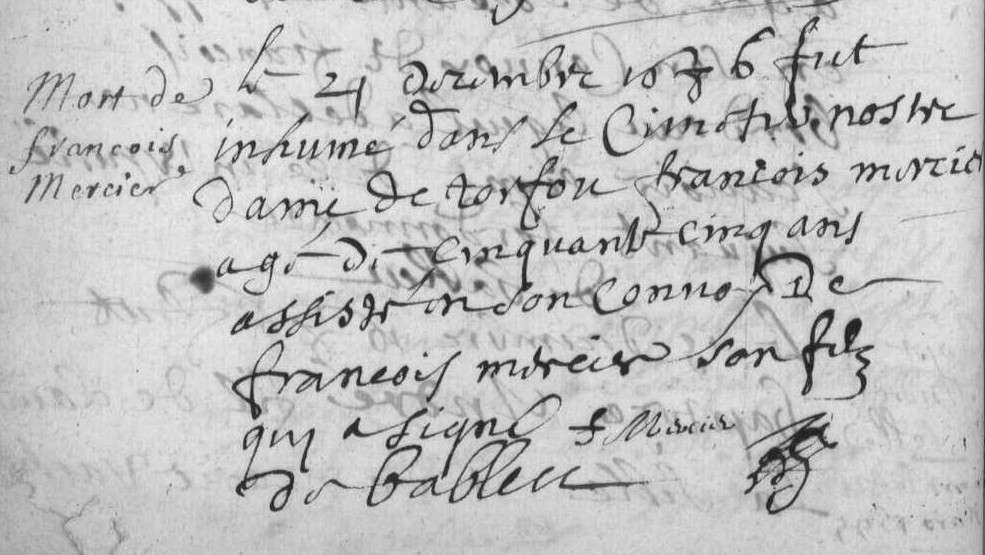 Mort de
francois
Mercier
le 21 decembre 1676 fut
inhumé dans le Cimetire nostre
dame de torfou francois mercier
agé de cinquante cinq ans
assisté en son Convoy De
francois mercier son filz
qui a signé f Mercier
de bableu